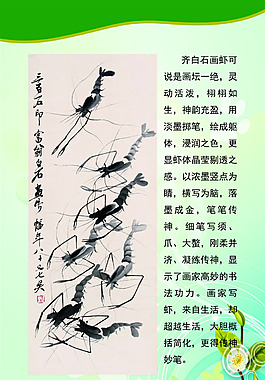 三百石印富翁白石
齐白石画虾可
说是画坛一绝，灵
动活泼，栩栩如
生，神韵充盈，用
淡墨掷笔，绘成躯
体，浸润之色，更
显虾体晶莹剔透之
感。以浓墨竖点为
睛，横写为脑，落
墨成金，笔笔传
神。细笔写须、
爪、大螯，刚柔并
济、凝炼传神，显
示了画家高妙的书
法功力。画家写
虾，来自生活，却
超越生活，大胆概
括简化，更得传神
妙笔。